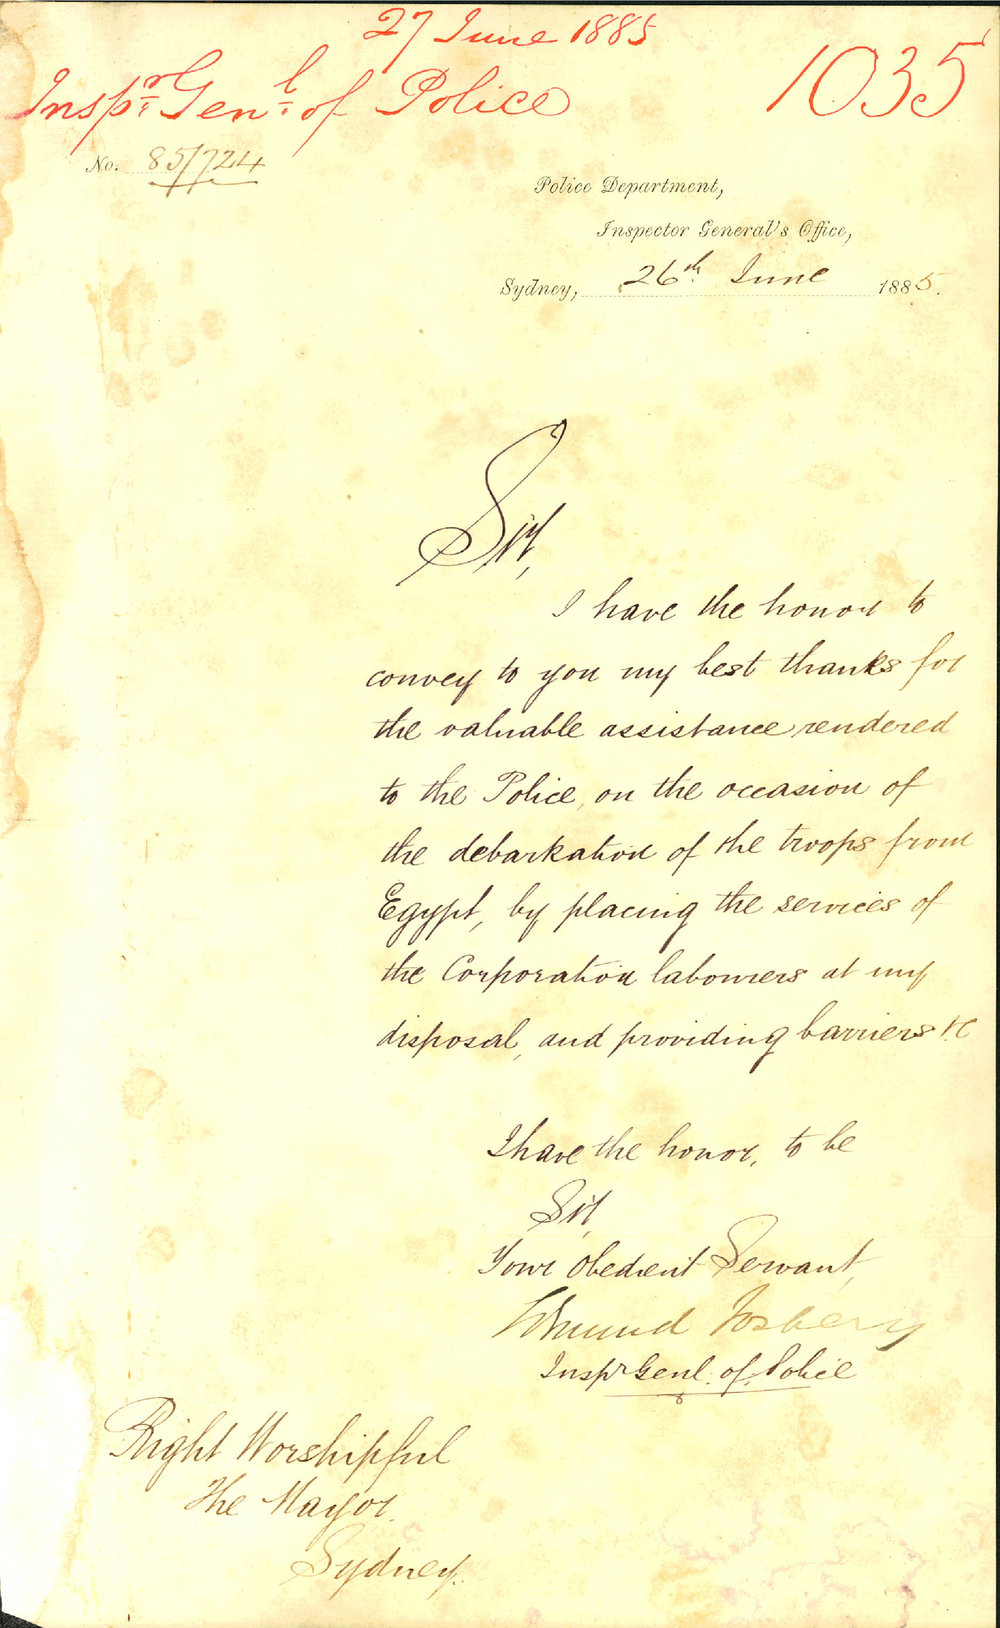 27 June 1885
Inspr. Genl. of Police
1035
No. 85/724
Police Department,
Inspector General's Office,
Sydney, 26th. June 1885.
Sir,
I have the honor to
convey to you my best thanks for
the valuable assistance rendered
to the Police, on the occasion of
the debarkation of the troops from
Egypt, by placing the services of
the Corporation labourers at my
disposal, and providing barriers &c
I have the honor, to be
Sir,
Your Obedient Servant,
Edmund Fosbery
Inspr Genl. of Police
Right Worshipful
The Mayor.
Sydney.